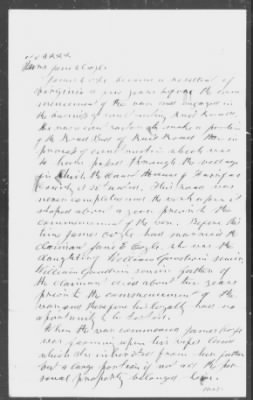 James Coyle became a resident of
Virginia a few years before the com
mencement of the war and engaged in
the business of constructing Rail Roads
He was contractor to make a portion
of the Road Bed of Rail Road then in
process of construction which was
to have passed through the village
in which the
County is situated. This road was
never completed and the work upon it
stopped about a year prior to the
commencement of the war. Before this
time James Coyle had married the
Claimant Jane E Coyle. She was the
daughter of William senior
William senior father of
the claimant died about two years
prior to the commencement of the
war and therefore his loyalty had no
opportunity to be tested.
When the war commenced James Coyle
was farming upon his wifes land
which she inherited from her father
but a large portion if not all the per
sonal property belonged